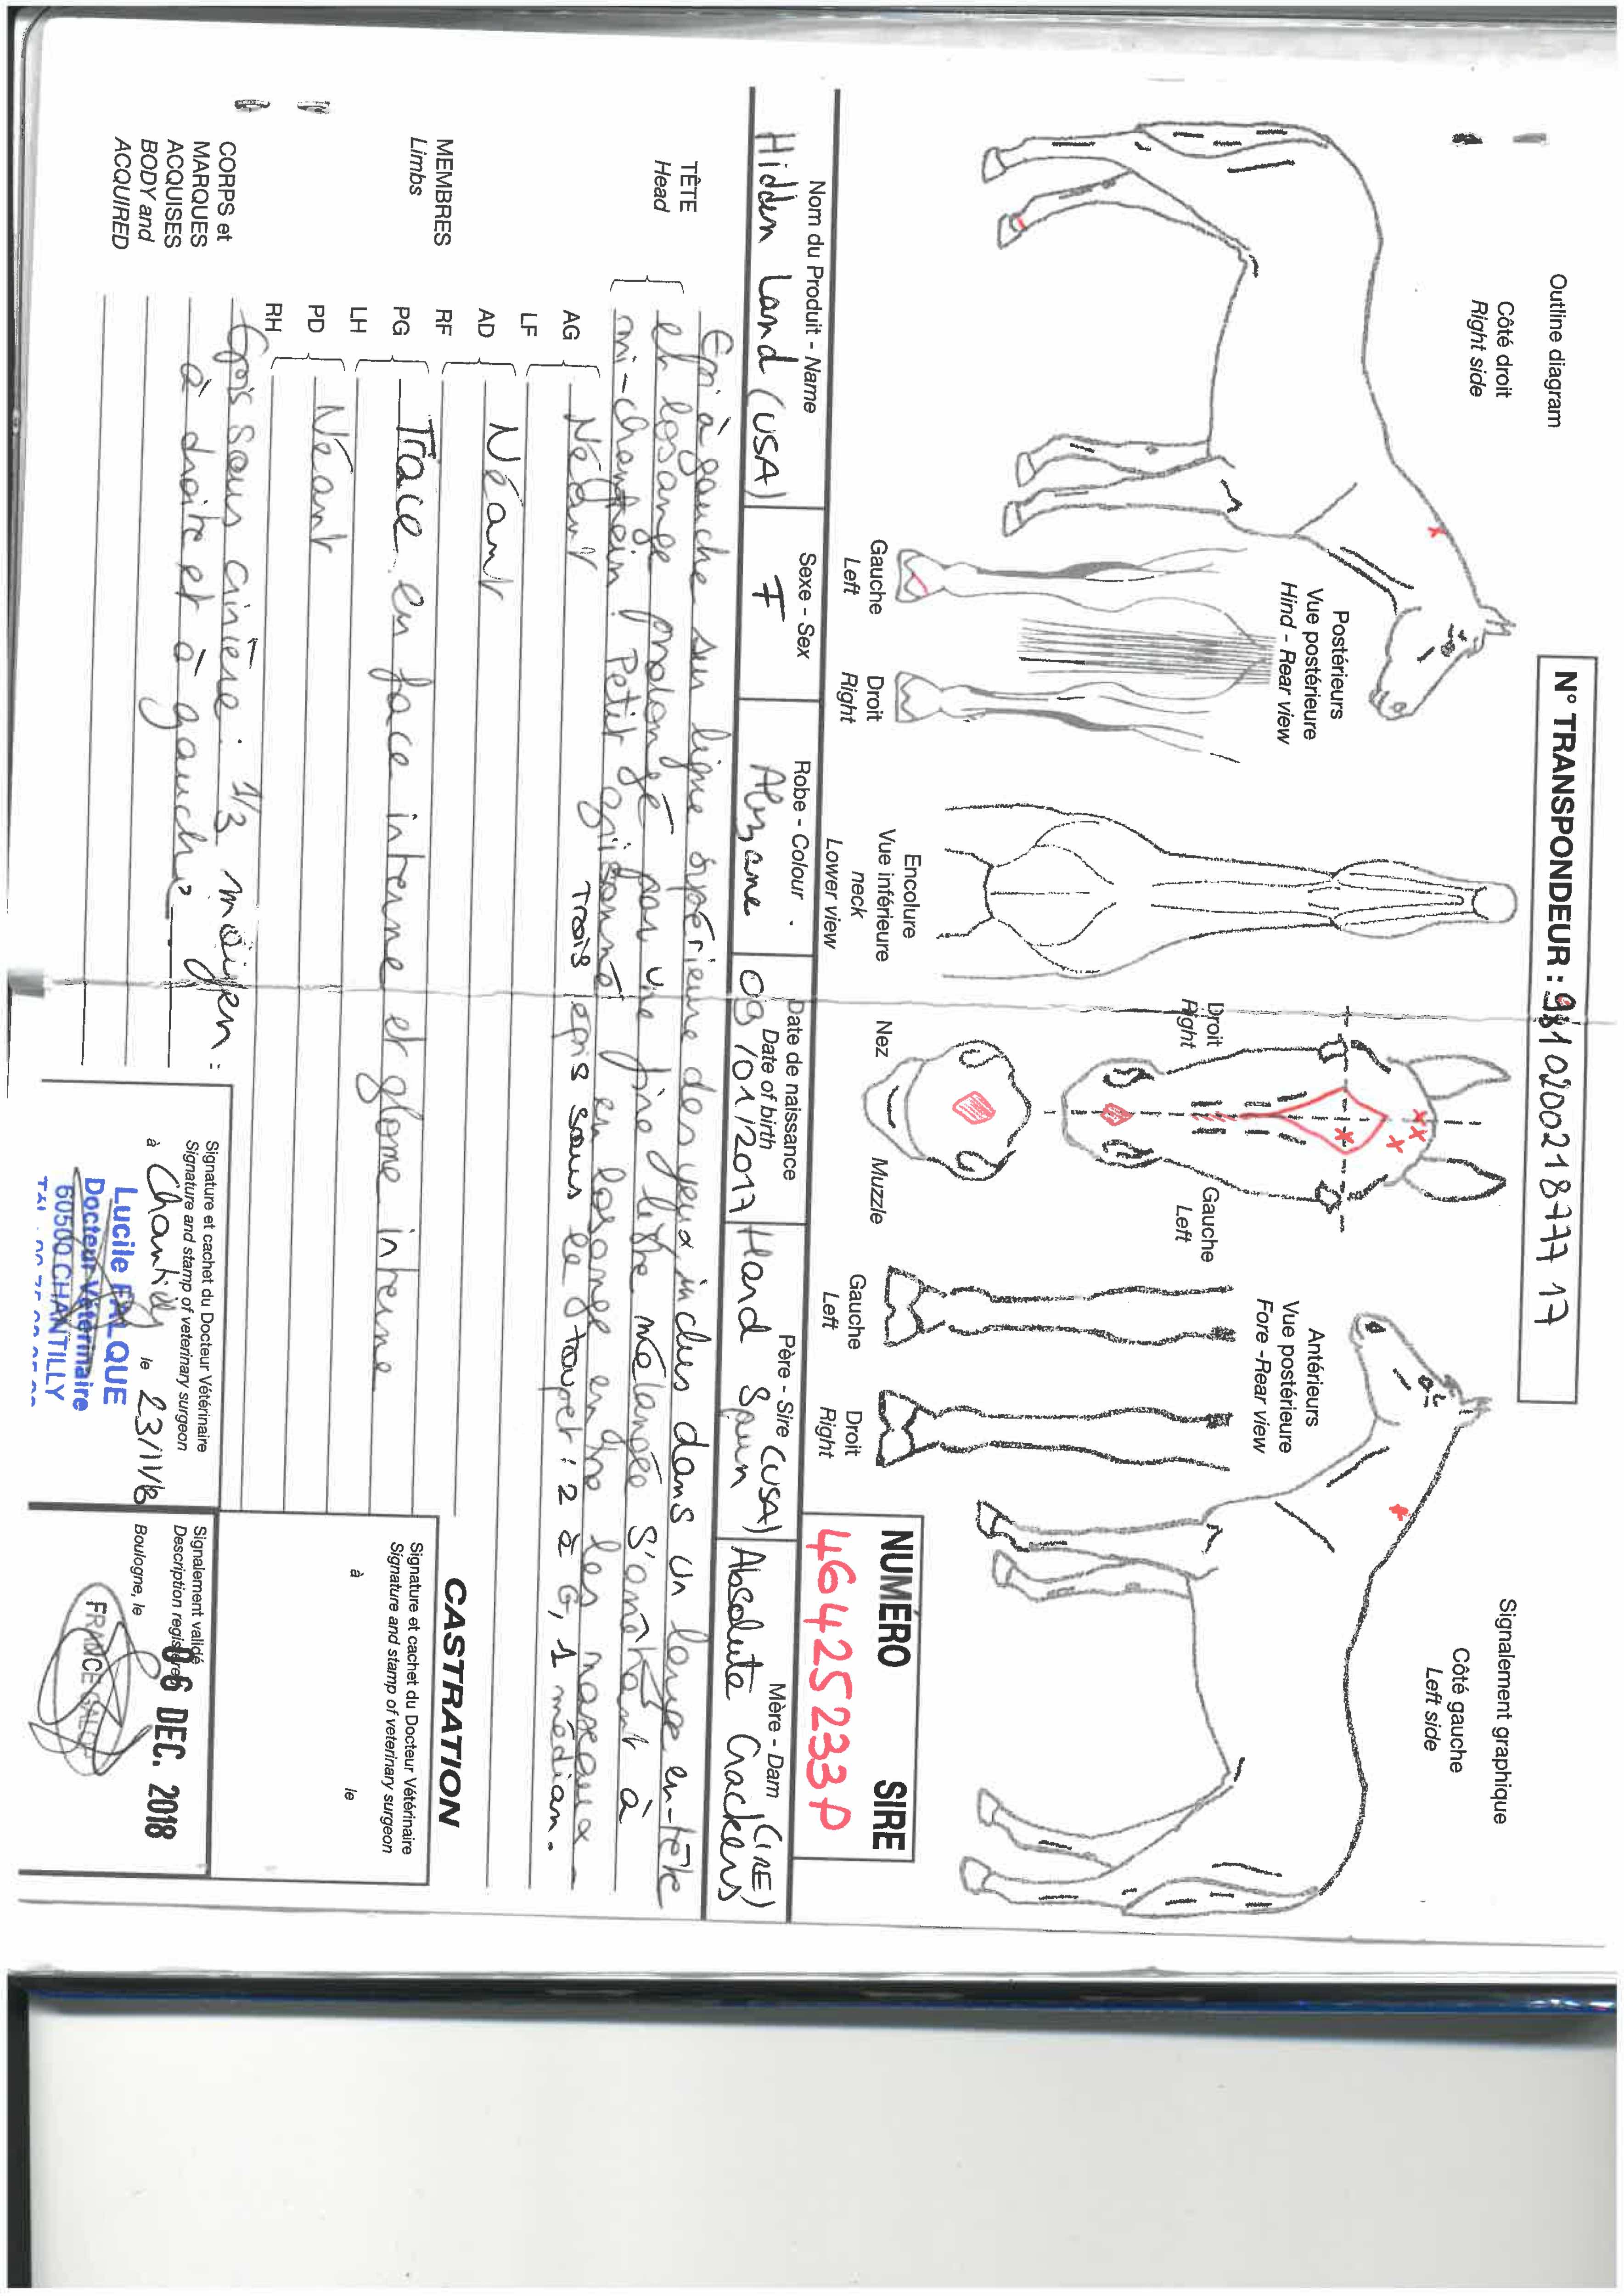 Outline diagram
Côté droit
Right side
N° TRANSPONDEUR : 981020021877717
Signalement graphique
Côté gauche
Left side
Postérieurs
Vue postérieure
Hind - Rear view
Gauche
Left
Droit
Right
Encolure
Vue inférieure
neck
Lower view
Droit
Right
Gauche
Left
Nez
Muzzle
Antérieurs
Vue postérieure
Fore - Rear view
Gauche
Left
Droit
Right
NUMÉRO SIRE
46425233P
Nom du Produit - Name
Hidden Land (USA)
Sexe - Sex
F
Robe - Colour
Alezane
Date de naissance
Date of birth
09/01/2017
Père - Sire
Hard Spun (USA)
Mère - Dam
Absolute Crackers (IRE)
TÊTE
Head
Epi à gauche sur ligne supérieure des yeux inclus dans un large en-tête
en losange prolongé par une fine liste mélangée s'arrêtant à
mi-chanfrein. Petit grisonné en losange entre les naseaux.
Trois épis sous le toupet : 2 à G, 1 médian.
MEMBRES
Limbs
AG
LF
Néant
AD
RF
Néant
PG
LH
Trace en face interne et glome interne
PD
RH
Néant
CORPS et
MARQUES
ACQUISES
BODY and
ACQUIRED
Epis sous crinière : 1/3 moyen :
à droite et à gauche
CASTRATION
Signature et cachet du Docteur Vétérinaire
Signature and stamp of veterinary surgeon
à le
Signature et cachet du Docteur Vétérinaire
Signature and stamp of veterinary surgeon
à Chantilly le 23/11/18
Lucile FALQUE
Docteur Vétérinaire
60500 CHANTILLY
Signalement validé
Description registered
Boulogne, le
06 DEC. 2018
FRANCE GALOP